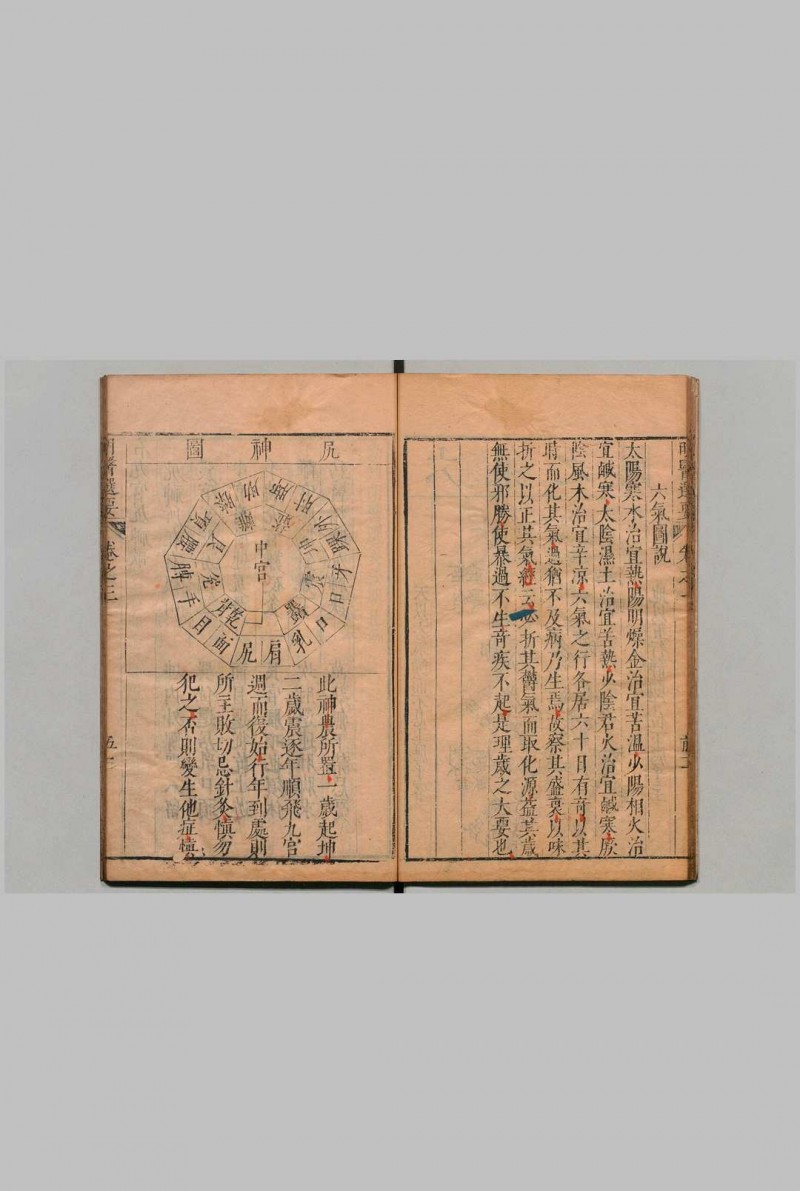 六氣圖說
太陽寒水治宜熱陽明燥金治宜苦溫少陽相火治
宜鹹寒太陰濕土治宜苦熱少陰君火治宜鹹寒厥
陰風木治宜辛涼六氣之行各居六十日有奇以其
時而化其氣過猶不及病乃生焉故察其盛衰以味
折之以正其氣經云必折其欝氣而取化源益其歲
無使邪勝使暴過不生奇疾不起是理歲之大要也
尻神圖
中宮
離
坤
震
兌
艮
乾
肩
尻
面
目
手
脾
項
腰
膝
肋
肘
外踝
牙
口
乳
此神農所置一歲起坤
二歲震逐年順飛九宮
週而復始行年到處則
所主敗切忌針灸慎勿
犯之否則變生他症慎
明醫選要
卷之二